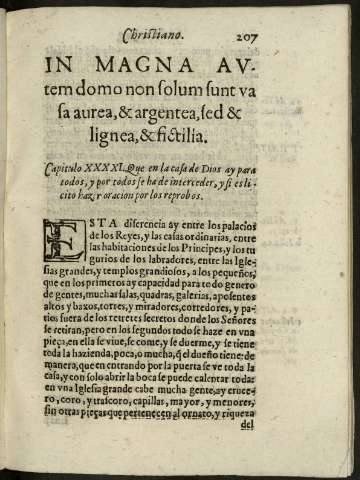 Christiano. 207
IN MAGNA AV-
tem domo non ſolum ſunt va
ſa aurea, & argentea, ſed &
lignea, & fictilia.
Capitulo XXXXI. Que en la caſa de Dios ay para
todos, y por todos ſe ha de interceder, y ſi es li
cito hazer oracion por los reprobos.
ESTA diferencia ay entre los palacios
de los Reyes, y las caſas ordinarias, entre
las habitaciones de los Principes, y los tu
gurios de los labradores, entre las Igle
ſias grandes, y templos grandioſos, a los pequeños,
que en los primeros ay capacidad para todo genero
de gentes, muchas ſalas, quadras, galerias, apoſentos
altos y baxos, torres, y miradores, corredores, y pa-
tios fuera de los retretes ſecretos donde los Señores
ſe retiran, pero en los ſegundos todo ſe haze en vna
pieça, en ella ſe viue, ſe come, y ſe duerme, y ſe tiene
toda la hazienda, poca, o mucha, q̃ el dueño tiene: de
manera, que en entrando por la puerta ſe ve toda la
caſa, y con ſolo abrir la boca ſe puede calentar toda:
en vna Igleſia grande cabe mucha gente, ay cruze-
ro, coro, y traſcoro, capillas, mayor, y menores,
ſin otras pieças que pertenecen al ornato, y riqueza
del